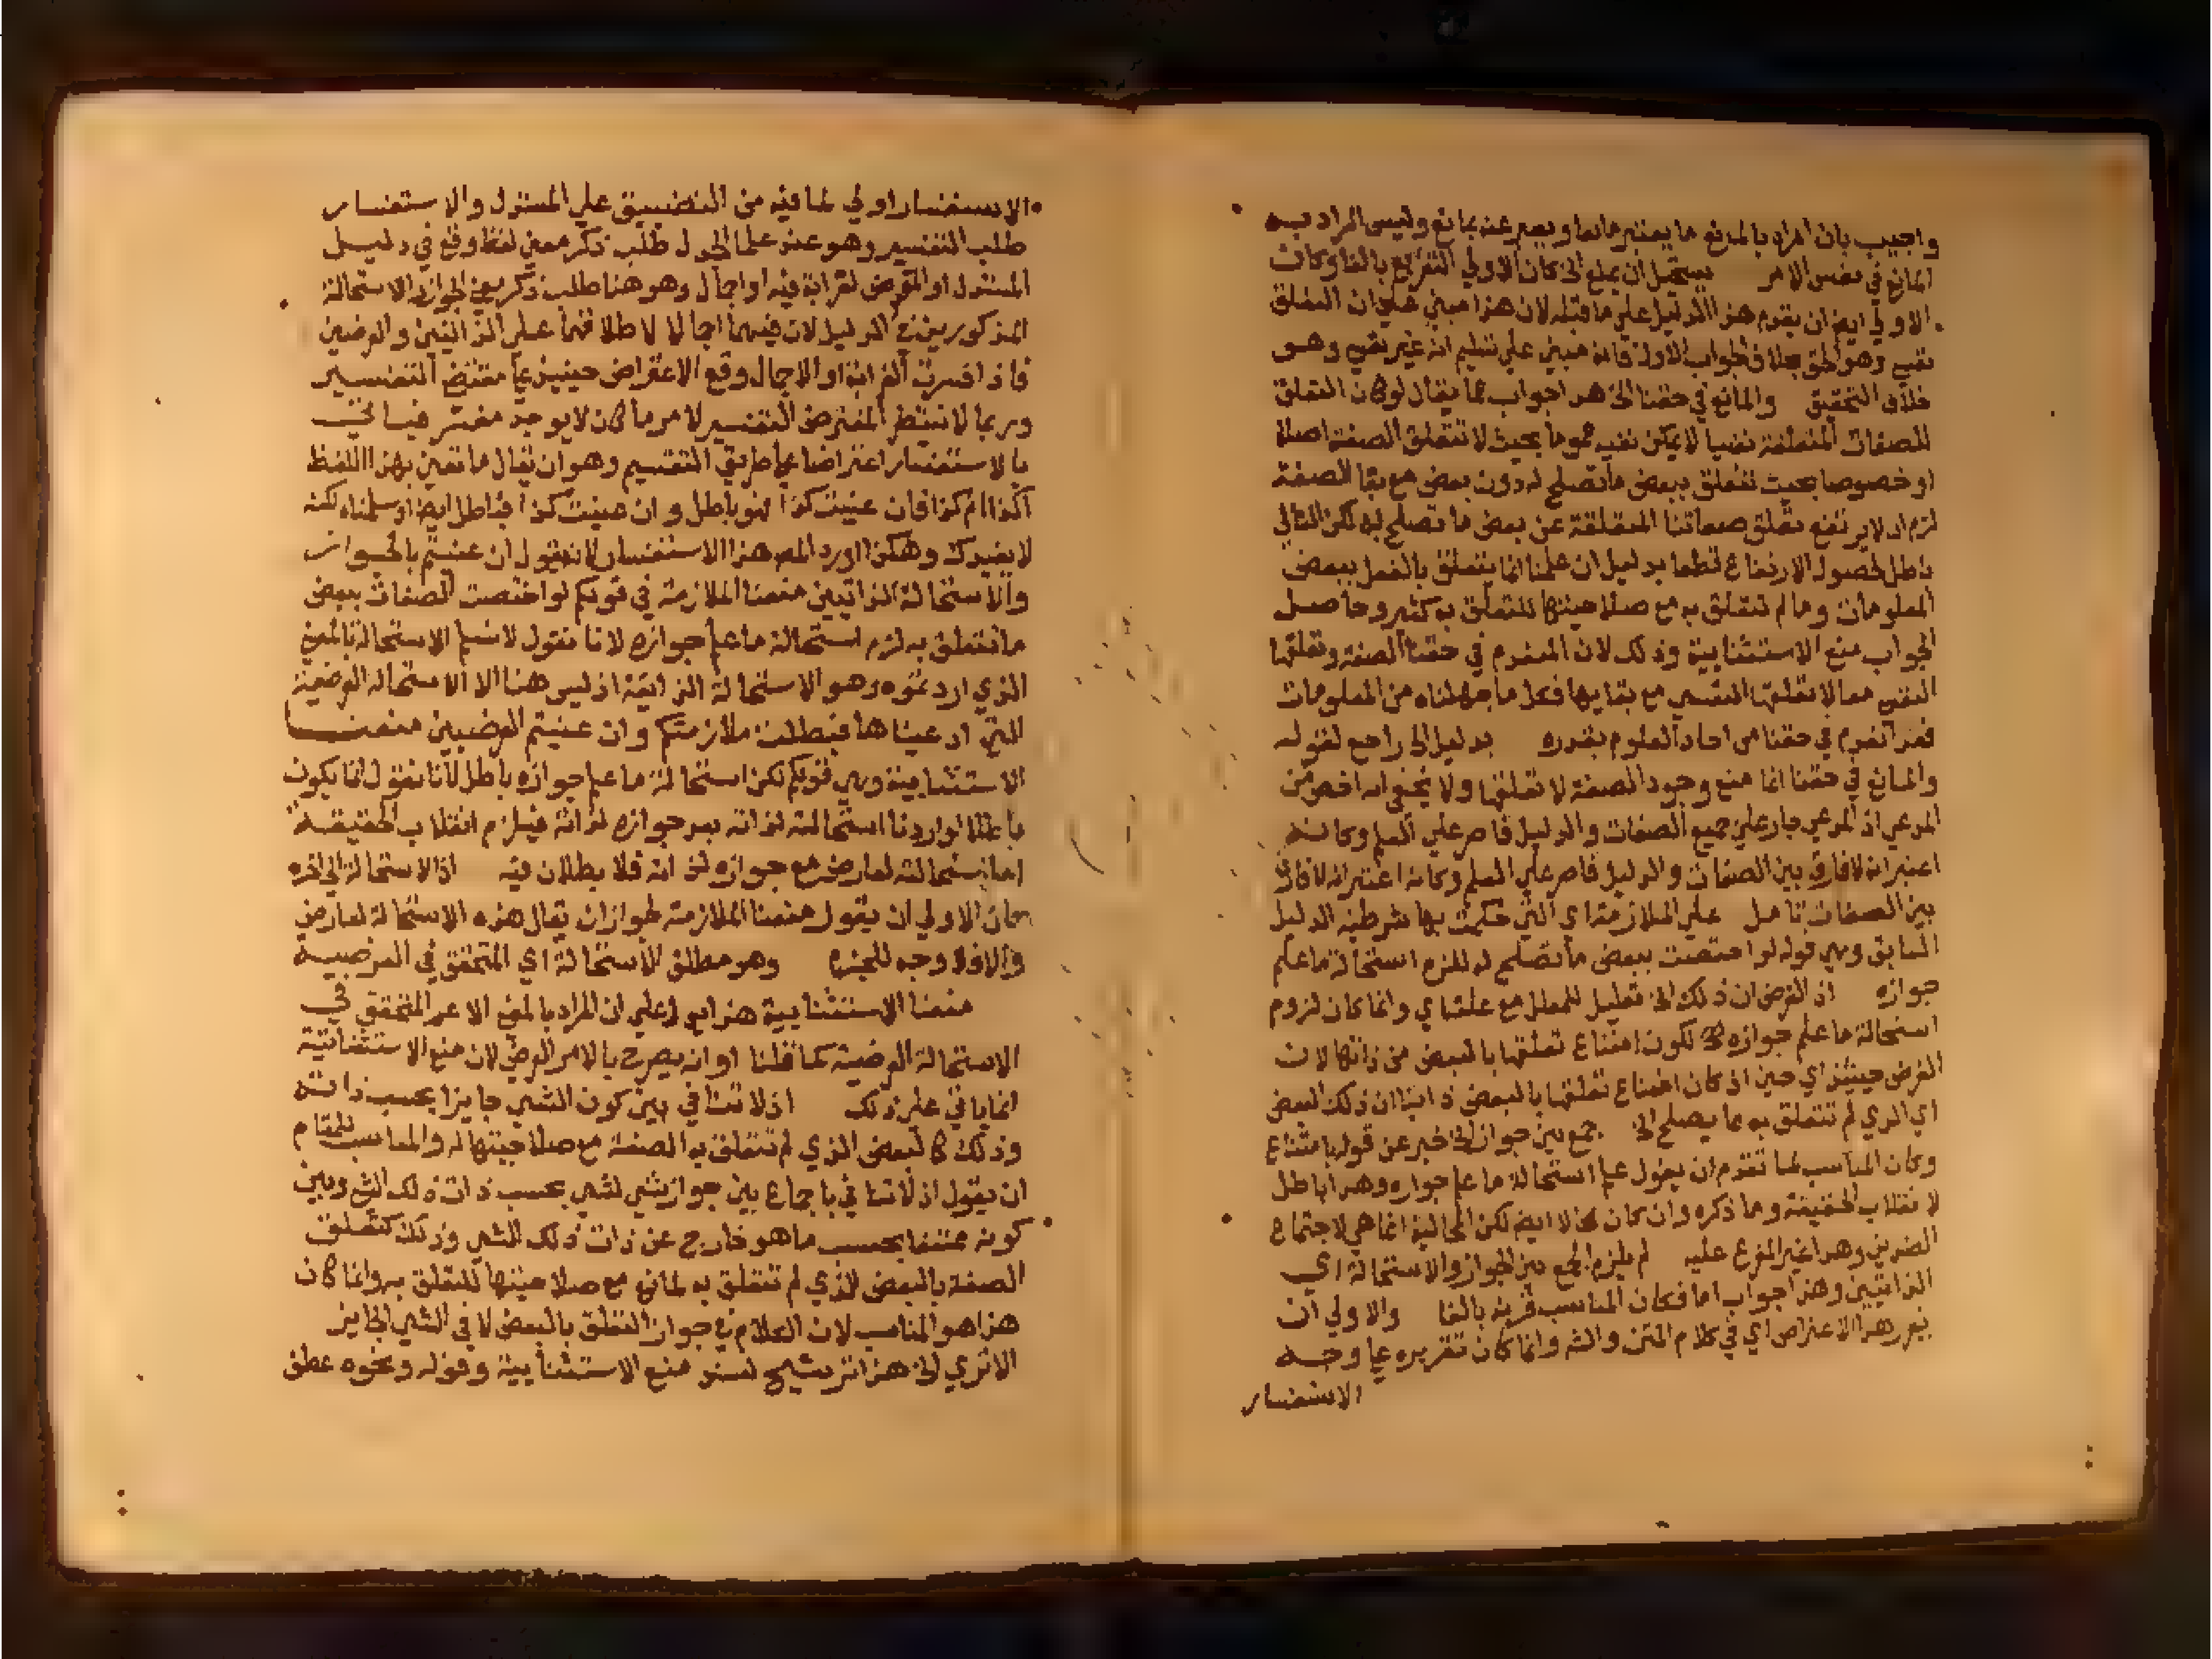 واجيب بان المراد بالمانع ما يعتبر مانعا ويعبر عنه بمانع وليس المراد به
المانع في نفس الامر يستحيل ان يمنع الخ كان الاولي التفريع بالفا وكان
الاولي ايضا ان يقدم هذا الدليل علي ما قبله لان هذا مبني علي ان التعلق
نفسي وهو الحق بخلاف الجواب الاول فانه مبني علي تسليم انه غير نفسي وهو
خلاف التحقيق والمانع في حقنا الخ هذا جواب عما يقال لو كان التعلق
للصفات المتعلقة نفسيا لا يمكن نفيه عموما بحيث لا تتعلق الصفة اصلا
او خصوصا بحيث تتعلق ببعض ما تصلح له دون بعض مع بقا الصفة
لزم ان لا يرتفع تعلق صفاتنا المتعلقة عن بعض ما تصلح له لكن التالي
باطل لحصول الارتفاع قطعا بدليل ان علمنا انما يتعلق بالفعل ببعض
المعلومات وما لم تتعلق به مع صلاحيتها للتعلق به كثير وحاصل
الجواب منع الاستثنايية وذلك لان المعدوم في حقنا الصفة وتعلقها
النفسي معا لا تعلقها النفسي مع بقايها فكل ما جهلناه من المعلومات
فقد انعدم في حقنا من احاد العلوم بقدره بدليل الخ راجع لقوله
والمانع في حقنا انما منع وجود الصفة لا تعلقها ولا يخفي انه اخص من
المدعي اذ المدعي جار علي جميع الصفات والدليل قاصر علي العلم وكانه
اعتبر انه لا فارق بين الصفات والدليل قاصر علي العلم وكانه اعتبر انه لا فارق
بين الصفات تامل علي الملازمة اي التي حكمت بها شرطية الدليل
السابق وهي قوله لو اختصت ببعض ما تصلح له للزم استحالة ما علم
جوازه اذ الفرض ان ذلك الخ تعليل للمعلل مع علته اي وانما كان لزوم
استحالة ما علم جوازه لكون امتناع تعلقها بالبعض من ذاتها لان
الفرض حينيذ اي حين اذ كان امتناع تعلقها بالبعض ذاتيا ان ذلك البعض
اي الذي لم تتعلق به مما يصلح الخ جمع بين جواز الخ خبر عن قوله امتناع
وكان المناسب لما تقدم ان يقول علم استحالة ما علم جوازه وهذا باطل
لانقلاب الحقيقة وما ذكره وان كان محالا ايضا لكن المحالية انما هي لاجتماع
الضدين وهذا غير المفرع عليه لم يلزم الجمع بين الجواز والاستحالة اي
الذاتيين وهذا جواب اما فكان المناسب قرنه بالفا والاولي ان
يقرر هذا الاعتراض اي في كلام المتن والشه وانما كان تقريره علي وجه
الاستفسار
الاستفسار اولي لما فيه من التضييق علي المستدل والاستفسار
طلب التفسير وهو عند علما الجدل طلب ذكر معني لفظ وقع في دليل
المستدل او المعترض لغرابة فيه او اجمال وهو هنا طلب ذكر معني الجواز والاستحالة
المذكورين في الدليل لان فيهما اجمالا لاطلاقهما علي الذاتيين والعرضيين
فاذا فسرت الغرابة او الاجمال وقع الاعتراض حينيذ علي مقتضي التفسير
وربما لا ينتظر المعترض التفسير لامر ما كان لا يوجد مفسر فياتي
بالاستفسار اعتراضا علي طريق التقسيم وهو ان يقال ما تعني بهذا اللفظ
اكذا ام كذا فان عنيت كذا فهو باطل وان عنيت كذا فباطل ايضا او سلمناه لكنه
لا يفيدك وهكذا اورد المص هذا الاستفسار لانه يقول ان عنيتم بالجواز
والاستحالة الذاتيين منعنا الملازمة في قولكم لو اختصت الصفات ببعض
ما تتعلق به لزم استحالة ما علم جوازه لانا نقول لا نسلم الاستحالة بالمعني
الذي اردتموه وهو الاستحالة الذاتية اذ ليس هنا الا الاستحالة العرضية
التي ادعيناها فبطلت ملازمتكم وان عنيتم العرضيين منعنا
الاستثنايية وهي قولكم لكن استحالة ما علم جوازه باطل لانا نقول انما يكون
باطلا لو اردنا استحالته لذاته بعد جوازه لذاته فيلزم انقلاب الحقيقة
اما استحالته لعارض مع جوازه لذاته فلا بطلان فيه اذ الاستحالة الي اخره
كان الاولي ان يقول منعنا الملازمة لجواز ان يقال هذه الاستحالة لعارض
والا فلا وجه للجزم وهو مطلق الاستحالة اي المتحقق في العرضية
منعنا الاستثنايية هذا يدل علي ان المراد بالمعني الاعم المتحقق في
الاستحالة العرضية كما قلنا او انه يصرح بالامر العرضي لان منع الاستثنايية
انما ياتي علي ذلك اذ لا تنافي بين كون الشي جايزا بحسب ذاته
وذلك كالبعض الذي لم تتعلق به الصفة مع صلاحيتها له والمناسب للمقام
ان يقول اذ لا تنافي باجماع بين جواز شي لشي بحسب ذات ذلك الشي وبين
كونه ممتنعا بحسب ما هو خارج عن ذات ذلك الشي وذلك كتعلق
الصفة بالبعض الذي لم تتعلق به لمانع مع صلاحيتها للتعلق به وانما كان
هذا هو المناسب لان الكلام في جواز التعلق بالبعض لا في الشي الجايز
الا تري الخ هذا ترشيح لسند منع الاستثنايية وقوله ونحوه عطف